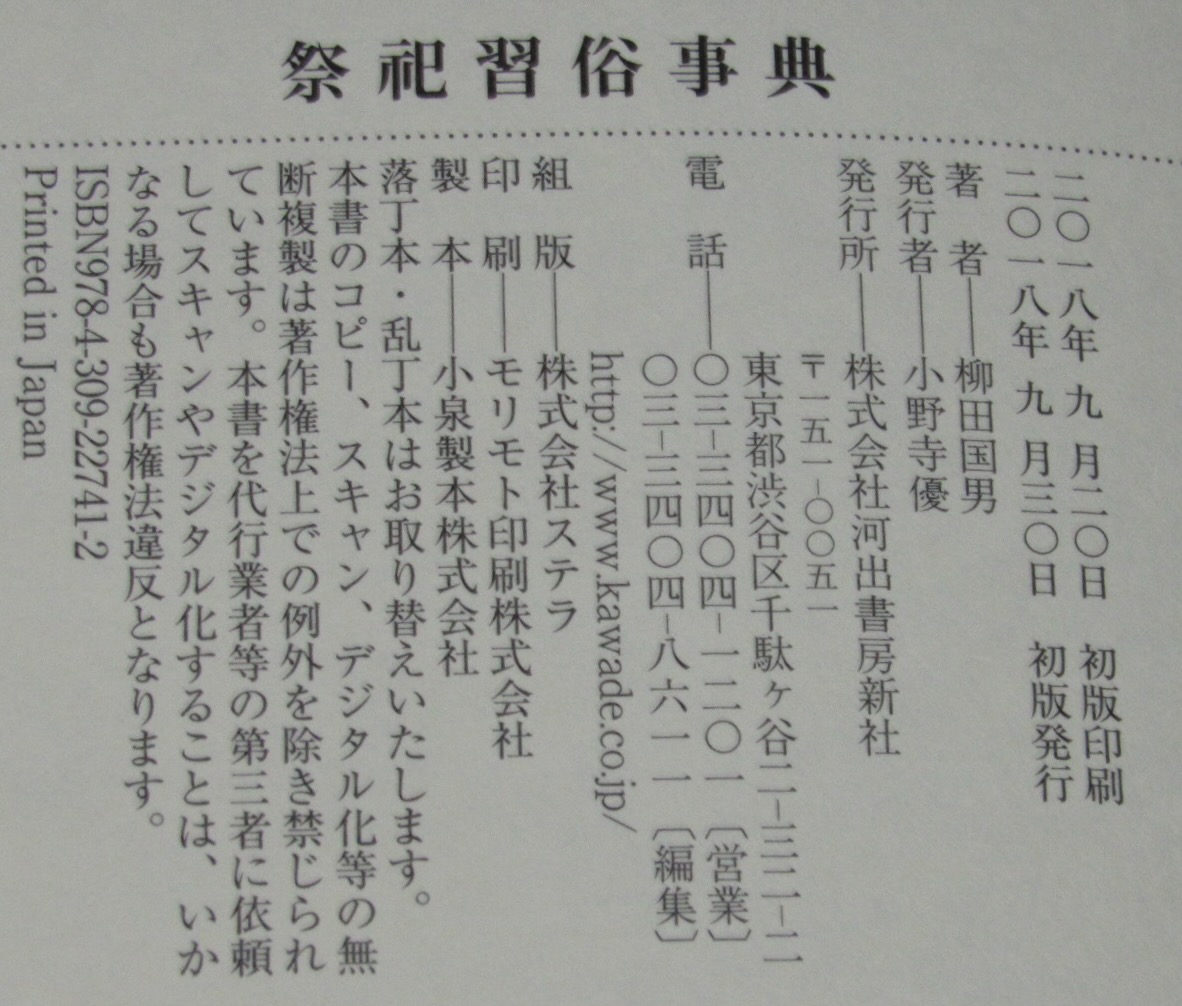 祭祀習俗事典
二〇一八年 九 月二〇日 初版印刷
二〇一八年 九 月三〇日 初版発行
著 者――柳田国男
発行者――小野寺優
発行所――株式会社河出書房新社
〒一五一-〇〇五一
東京都渋谷区千駄ヶ谷二-三二-二
電 話――〇三-三四〇四-一二〇一〔営業〕
〇三-三四〇四-八六一一〔編集〕
http://www.kawade.co.jp/
組 版――株式会社ステラ
印 刷――モリモト印刷株式会社
製 本――小泉製本株式会社
落丁本・乱丁本はお取り替えいたします。
本書のコピー、スキャン、デジタル化等の無
断複製は著作権法上での例外を除き禁じられ
ています。本書を代行業者等の第三者に依頼
してスキャンやデジタル化することは、いか
なる場合も著作権法違反となります。
ISBN978-4-309-22741-2
Printed in Japan